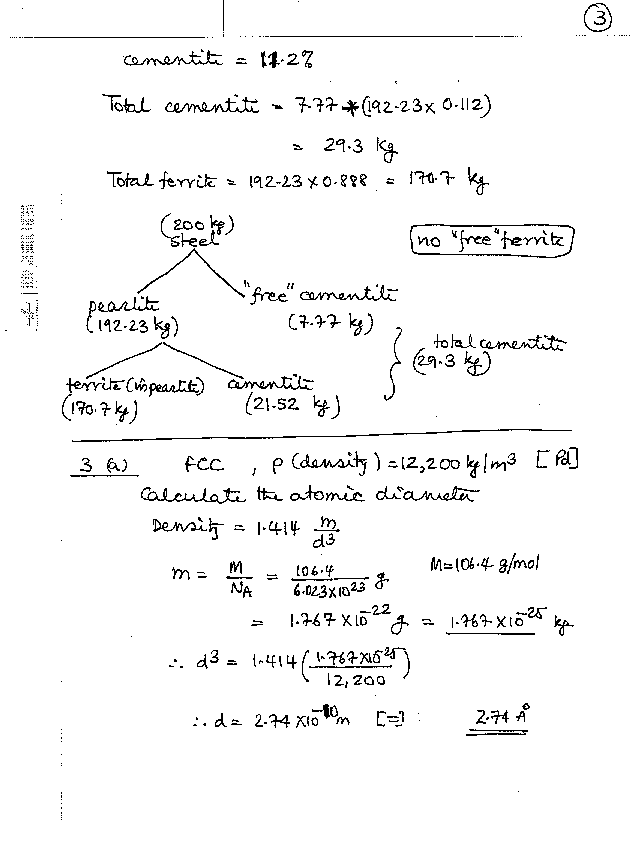 3
cementite = 11.2%
Total cementite = 7.77 + (192.23 x 0.112)
= 29.3 kg
Total ferrite = 192.23 x 0.888 = 170.7 kg
(200 kg)
steel
no "free" ferrite
pearlite
(192.23 kg)
"free" cementite
(7.77 kg)
total cementite
(29.3 kg)
ferrite (in pearlite)
(170.7 kg)
cementite
(21.52 kg)
3 (a) FCC, ρ (density) = 12,200 kg/m³ [Pd]
Calculate the atomic diameter
Density = 1.414 m/d³
m = M/N_A = 106.4/6.023x10²³ g M=106.4 g/mol
= 1.767 x 10⁻²² g = 1.767 x 10⁻²⁵ kg
∴ d³ = 1.414 (1.767x10⁻²⁵/12,200)
∴ d = 2.74 x 10⁻¹⁰ m [=] 2.74 Å